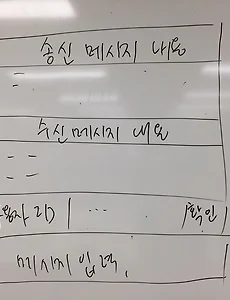 송신 메시지 내용
수신 메시지 내용
용자 ID | ... 확인
메시지 입력,